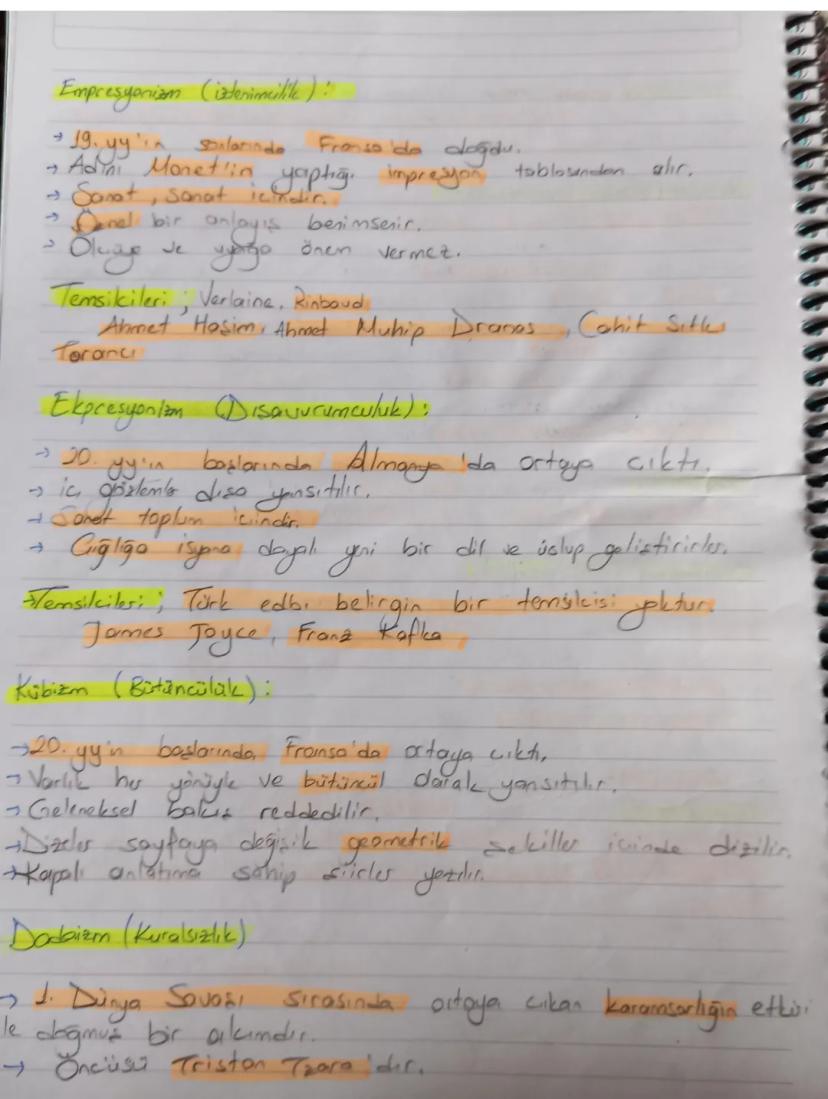 Empresyonizm (izlenimcilik):
→ 19. yy'ın sonlarında Fransa'da doğdu.
→ Adını Monet'in yaptığı impresyon tablosundan alır.
→ Sanat, sanat içindir.
→ Öznel bir anlayış benimsenir.
→ Ölçüye ve uyağa önem vermez.
Temsilcileri; Verlaine, Rinbaud,
Ahmet Haşim, Ahmet Muhip Dranas, Cahit Sıtkı
Tarancı
Ekpresyonizm (Dışavurumculuk):
→ 20. yy'ın başlarında Almanya'da ortaya çıktı.
→ iç gözlemle dışa yansıtılır.
→ Sanat toplum içindir.
→ Çığlığa isyana dayalı yeni bir dil ve üslup geliştirirler.
→ Temsilcileri; Türk edb. belirgin bir temsilcisi yoktur.
James Joyce, Franz Kafka,
Kübizm (Bütüncülük):
→ 20. yy'n başlarında, Fransa'da ortaya çıktı,
→ Varlık her yönüyle ve bütüncül olarak yansıtılır.
→ Geleneksel bakış reddedilir.
→ Dizeler sayfaya değişik geometrik şekiller içinde dizilir.
→ Kapalı anlatıma sahip şiirler yazılır.
Dadaizm (Kuralsızlık)
→ 1. Dünya Savaşı sırasında ortaya çıkan karamsarlığın etkisi
le doğmuş bir akımdır.
→ Öncüsü Tristan Tzara'dır.